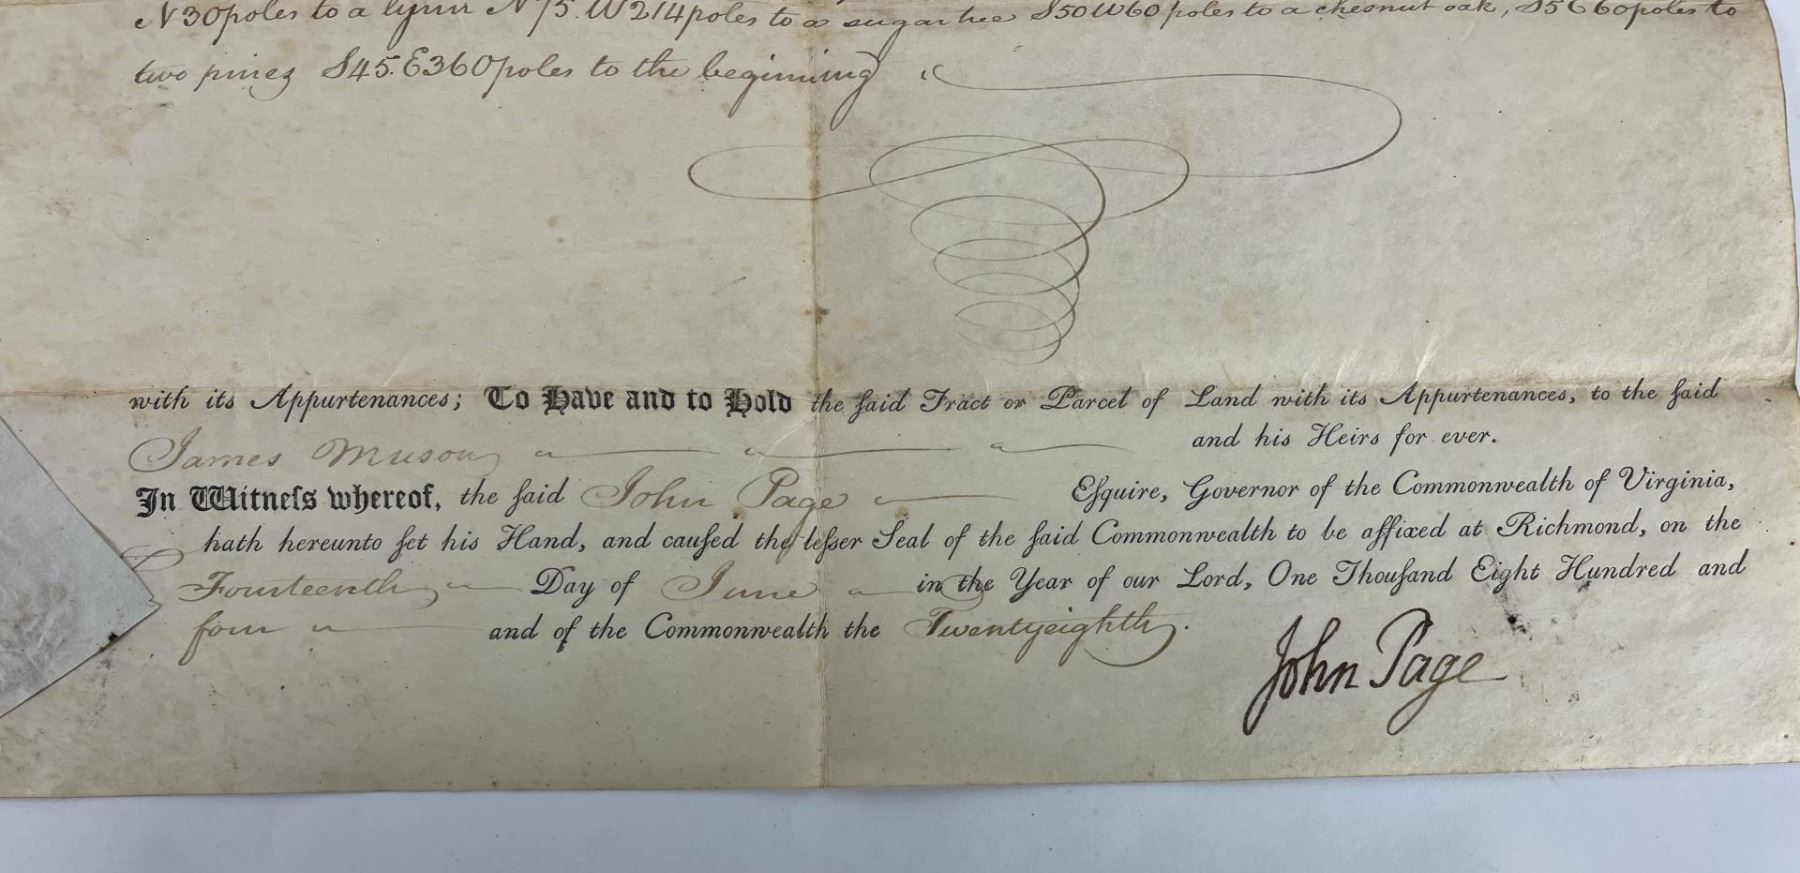 N30poles to a lynn N75.W214poles to a sugartree S50W60poles to a chesnut oak, S5E60poles to
two pines S45.E360poles to the beginning
with its Appurtenances; To Have and to Hold the ſaid Tract or Parcel of Land with its Appurtenances, to the ſaid
James Muson and his Heirs for ever.
In Witneſs whereof, the ſaid John Page Eſquire, Governor of the Commonwealth of Virginia,
hath hereunto ſet his Hand, and cauſed the leſser Seal of the ſaid Commonwealth to be affixed at Richmond, on the
Fourteenth Day of June in the Year of our Lord, One Thouſand Eight Hundred and
four and of the Commonwealth the Twentyeighth.
John Page